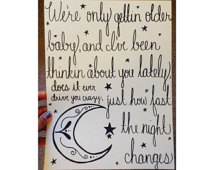 We're only gettin older
baby, and I've been
thinkin about you lately,
does it ever
drive you crazy,
just how fast
the night
changes